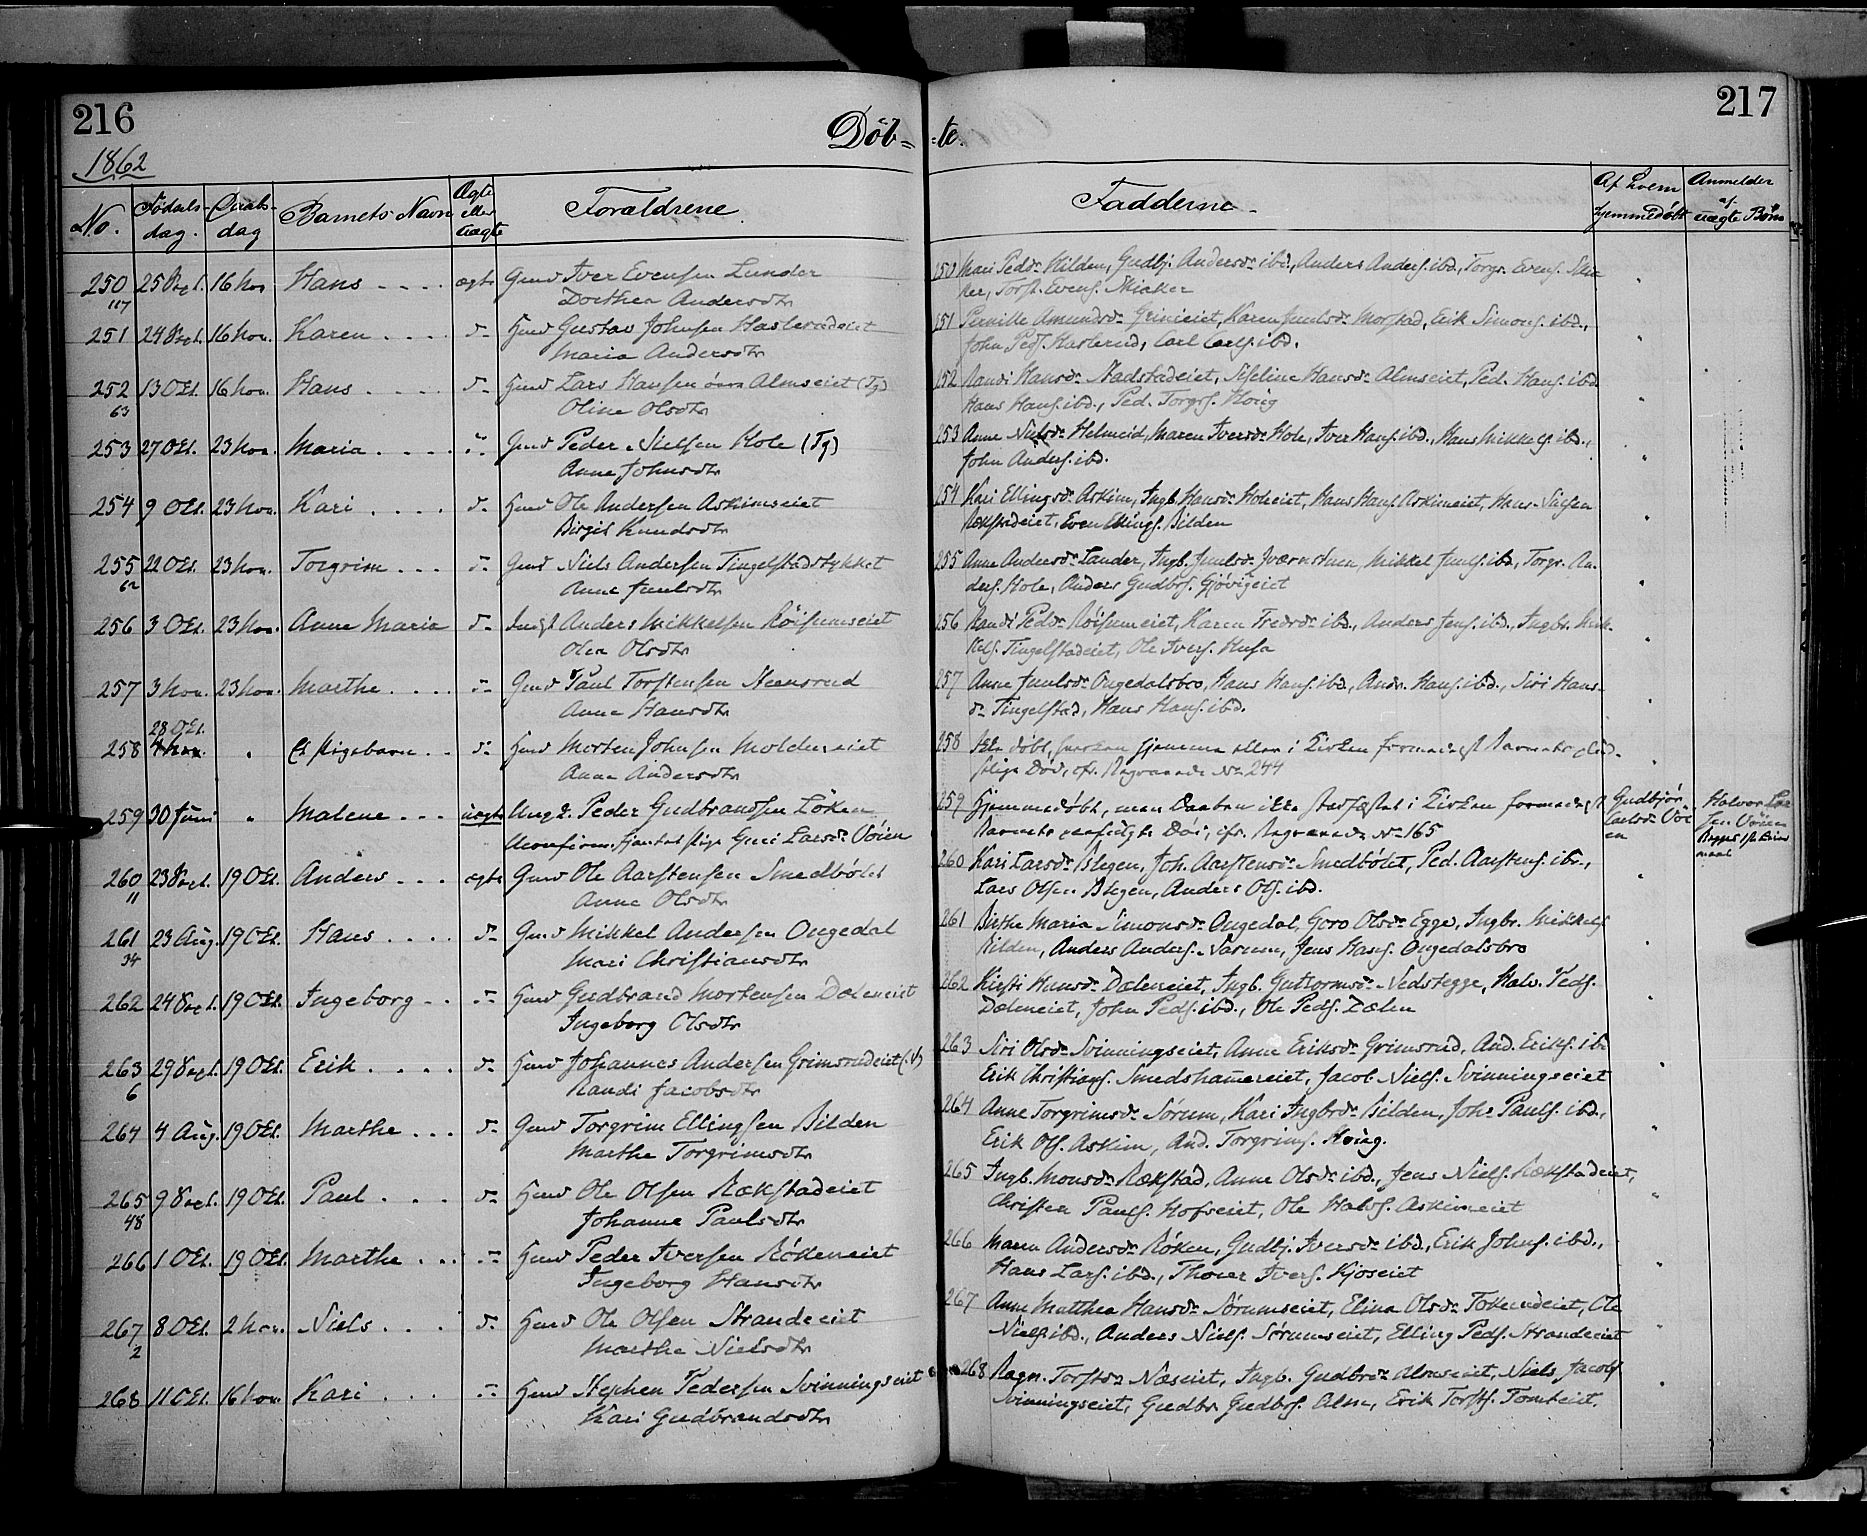 216
Döb-
1862
No.
Födsels-
dag.
Daabs-
dag
Barnets Navn
Ægte
eller
Uægte
Forældrene
250 25 Sept. 16 Nov Hans ægte Gmd Iver Evensen Lunder
117 Dorthea Andersdtr
251 24 Sept. 16 Nov. Karen d- Hmd Gustav Johnsen Haslerudeiet
Maria Andersdtr
252 13 Okt. 16 Nov. Hans d- Hmd Lars Hansen Almseiet (Tg)
63 Oline Olsdtr
253 27 Okt. 23 Nov. Maria d- Gmd Peder Nielsen Hole (Tg)
Anne Johnsdtr
254 9 Okt. 23 Nov. Kari d- Hmd Ole Andersen Askimseiet
Birgit Knudsdtr
255 22 Okt. 23 Nov. Torgrim d- Gmd Niels Andersen Tingelstadstykket
62 Anne Juulsdtr
256 3 Okt. 23 Nov. Anne Maria d- Anders Mikkelsen Röisumseiet
Olea Olsdtr
257 3 Nov. 23 Nov. Marthe d- Gmd Paul Torstensen Heensrud
Anne Hansdtr
28 Okt.
258 4 Nov. " Et Pigebarn d- Hmd Morten Johnsen Moldeneiet
Anne Andersdtr
259 30 Juni " Malene uægte Ung. Peder Gudbrandsen Löken
Pige Guri Larsd. Vöien
260 23 Sept. 19 Okt. Anders ægte Gmd Ole Aarstensen Smedbölet
11 Anne Olsdtr
261 23 Aug. 19 Okt. Hans d- Gmd Mikkel Andersen Ongedal
34 Mari Christiansdtr
262 24 Sept. 19 Okt. Ingeborg d- Hmd Gudbrand Mortensen Dæleneiet
Ingeborg Olsdtr
263 29 Sept. 19 Okt. Erik d- Hmd Johannes Andersen Grimsrudeiet
6 Randi Jacobsdtr
264 4 Aug. 19 Okt. Marthe d- Gmd Torgrim Ellingsen Bilden
Marthe Torgrimsdtr
265 9 Sept. 19 Okt. Paul d- Hmd Ole Olsen Rækstadeiet
48 Johanne Paulsdtr
266 1 Okt. 19 Okt. Marthe d- Hmd Peder Iversen Rökeneiet
Ingeborg Hansdtr
267 8 Okt. 2 Nov. Niels d- Hmd Ole Olsen Strandeiet
2 Marthe Nielsdtr
268 11 Okt. 16 Nov. Kari d- Hmd Stephen Pedersen Svinningseiet
Kari Gudbrandsdtr
217
-te.
Fadderne
Af hvem
hjemmedöbt
Anmelder
af
uægte Börn
250 Mari Pedsd. Hilden, Gudbj. Andersd. ibd., Anders Anders. ibd., Torgr. Evens. Skia-
ker, Torst. Evens. Skiaker
251 Pernille Amundsd. Grinieiet, Karen Juulsd. Morstad, Erik Simons. ibd.,
John Peds. Hasterud, Carl Carls. ibd.
252 Randi Hansd. Nadstadeiet, Siseline Hansd. Almseiet, Ped. Hans. ibd.
Hans Hans. ibd., Ped. Torgrs. Hvig
253 Anne Nielsd. Helmeid, Maren Iversd. Hole, Iver Hans. ibd., Hans Mikkels. ibd.,
John Anders. ibd.
254 Kari Ellingsd. Askim, Ingb. Hansd. Hoheiet, Hans Hans. Askimeiet, Hans Nielsen
Rækstadeiet, Even Ellings. Bilden
255 Anne Andersd. Lunder, Ingb. Juulsd. Mikkel Juuls. ibd., Torgr. An-
ders. Hole, Anders Gudbrs. Gjövigeiet
256 Randi Pedsd. Röisumeiet, Karen Fredrsd. ibd., Anders Jens. ibd., Ingbr. Mik-
kels. Tingelstadeiet, Ole Ivers. Husa
257 Anne Juulsd. Ongedalsbro, Hans Hans. ibd., Andr. Hans. ibd., Siri Hans-
d. Tingelstad, Hans Hans. ibd.
258 Ikke döbt, hverken hjemme eller i Kirken formedelst Barnets plud-
selige Död, cfr. Begravede No. 244
259 Hjemmedöbt, men Daaben ikke stadfæstet i Kirken formedelst
Barnets Död, cfr. Begravede No. 165
Gudbjör
Larsd. Vöi-
en
Halvor Lar-
sen Vöien
260 Kari Larsd. Blegen, Joh. Aarstensd. Smedbölet, Ped. Aarstens. ibd.,
Lars Olsen Blegen, Anders Ols. ibd.
261 Birthe Maria Simonsd. Ongedal, Goro Olsd. Egge, Ingbr. Mikkels.
Bilden, Anders Anders. Jens Hans. Ongedalsbro
262 Kirsti Hansd. Dæleneiet, Ingb. Guttormsd. Nedstegge, Halv. Peds.
Dæleneiet, John Peds. ibd., Ole Peds. Dælen
263 Siri Olsd. Svinningseiet, Anne Eriksd. Grimsrud, And. Eriks. ibd.
Erik Christians. Smedshameneiet, Jacob Niels. Svinningseiet
264 Anne Torgrimsd. Sörum, Kari Ingbrd. Bilden, Johs. Pauls. ibd.,
Erik Ols. Askim, And. Torgrims. Hvig.
265 Ingb. Monsd. Rækstad, Anne Olsd. ibd., Jens Niels. Rækstadeiet,
Christen Pauls. Hofseiet, Ole Halvs. Askimeiet
266 Maren Andersd. Röken, Gudbj. Iversd. ibd., Erik Johns. ibd.,
Hans Lars. ibd., Thorer Ivers. Kjoseiet
267 Anne Matthea Hansd. Sörumseiet, Elina Olsd. Tokerudeiet, Ole
Niels. ibd., Anders Niels. Sörumseiet, Elling Peds. Strandeiet
268 Ragn. Torstsd. Næseiet, Ingb. Gudbrd. Almseiet, Niels Jacobs.
Svinningseiet, Gudbr. Gudbrs. Alm, Erik Torsts. Tomteiet.